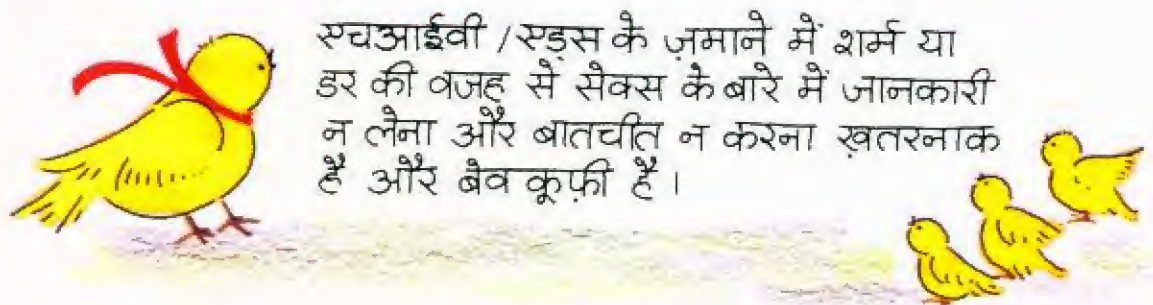 एचआईवी /एड्स के ज़माने में शर्म या
डर की वजह से सेक्स के बारे में जानकारी
न लेना और बातचीत न करना ख़तरनाक
है और बेवकूफ़ी है।